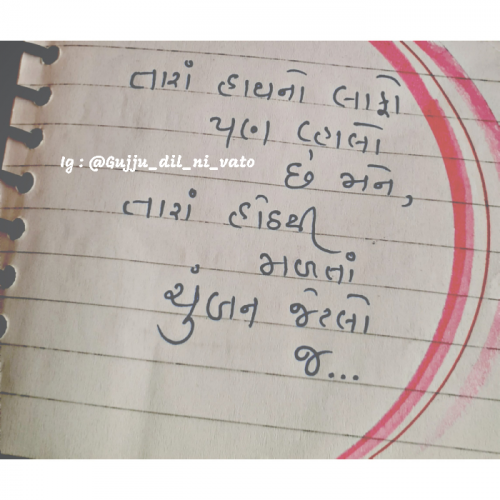 તારાં હાથનો લાફો
પણ વ્હાલો
Ig : @Gujju_dil_ni_vato
છે મને,
તારાં હોઠથી
મળતાં
ચુંબન જેટલો
જ...